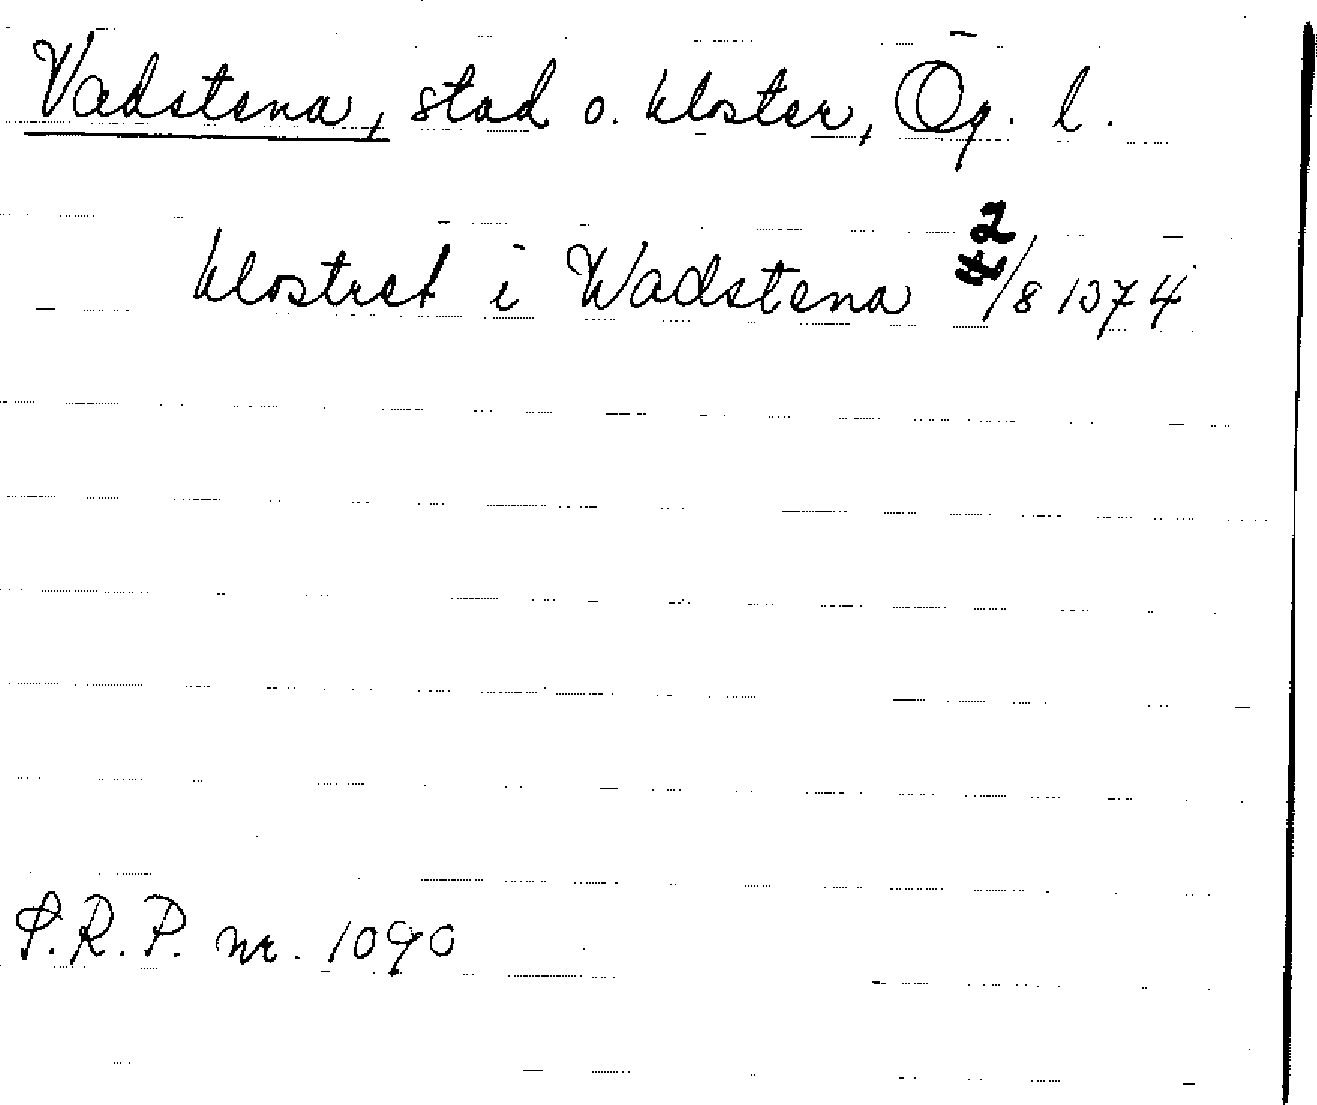 Vadstena, stad o. kloster, Ög. l.
klostret i Wadstena 2/8 1374
S.R.P. nr. 1090